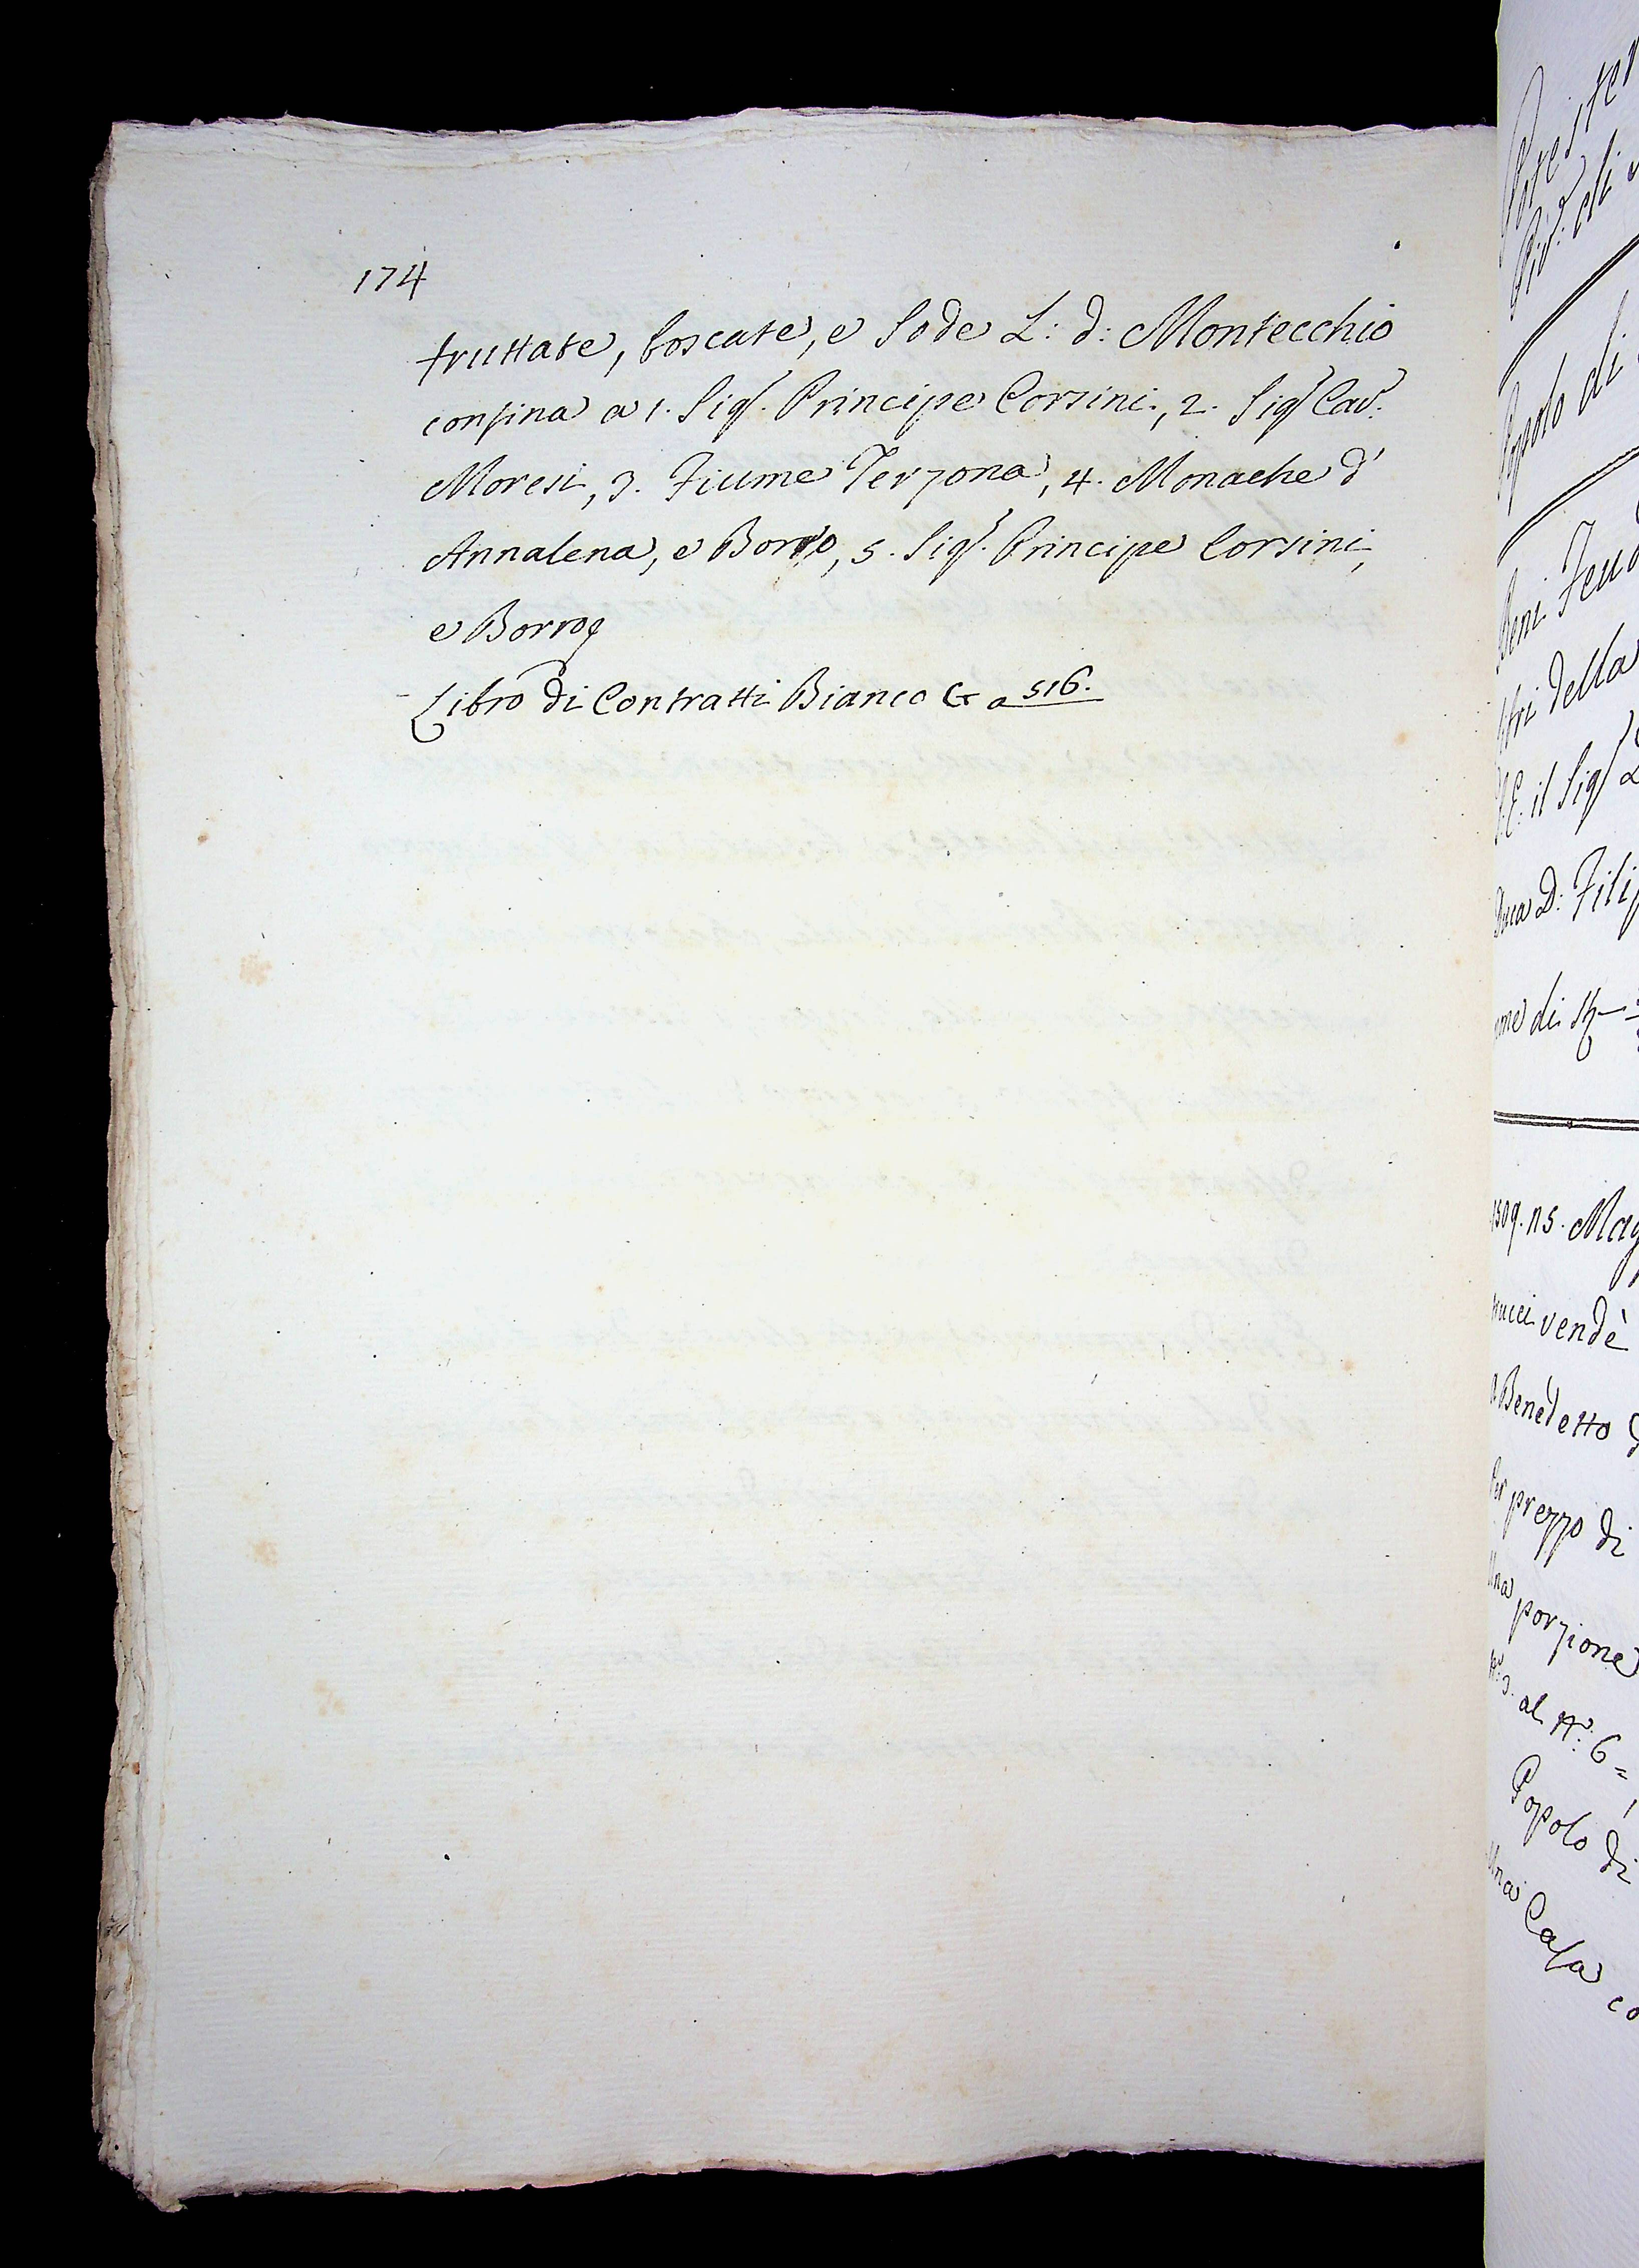 174
fruttate, boscate, e Sode L: d: Montecchio
confina a 1. Sig.r Principe Corsini, 2. Sig.r Cav.r
Moresi, 3. Fiume Terzona, 4. Monache d'
Annalena, e Borro, 5. Sig.r Principe Corsini,
e Borro
Libro di Contratti Bianco G a 516.
Popolo di
Beni Feud
della
S.E: il Sig.r
Duca D: Filip
di
1509. 15. Mag
vendè
a Benedetto
Per prezzo di
Una porzione
al N.o: 6 =
Popolo di
Una Casa co